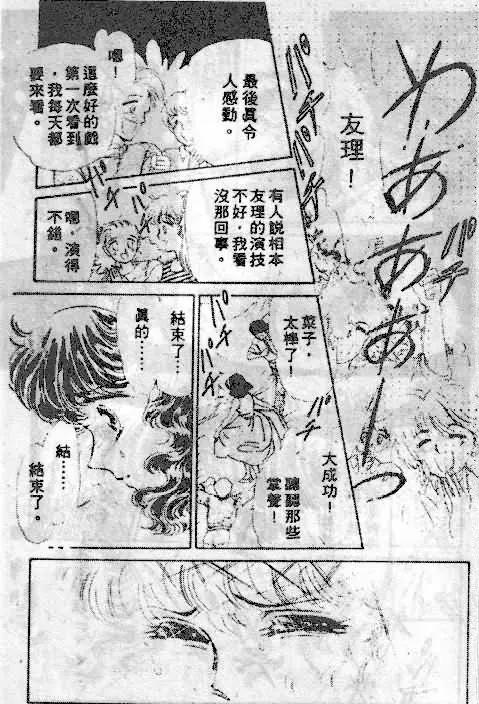 わあああーっ
パチ
パチ
パチ
友理！
最後眞令
人感動。
嗯！
這麼好的戲
第一次看到
，我每天都
要來看。
有人說相本
友理的演技
不好，我看
沒那回事。
嗯，演得
不錯。
パチ
パチ
菜子，
太棒了！
パチ
パチ
パチ
大成功！
聽聽那些
掌聲！
結束了…
眞的……
結……
結束了。